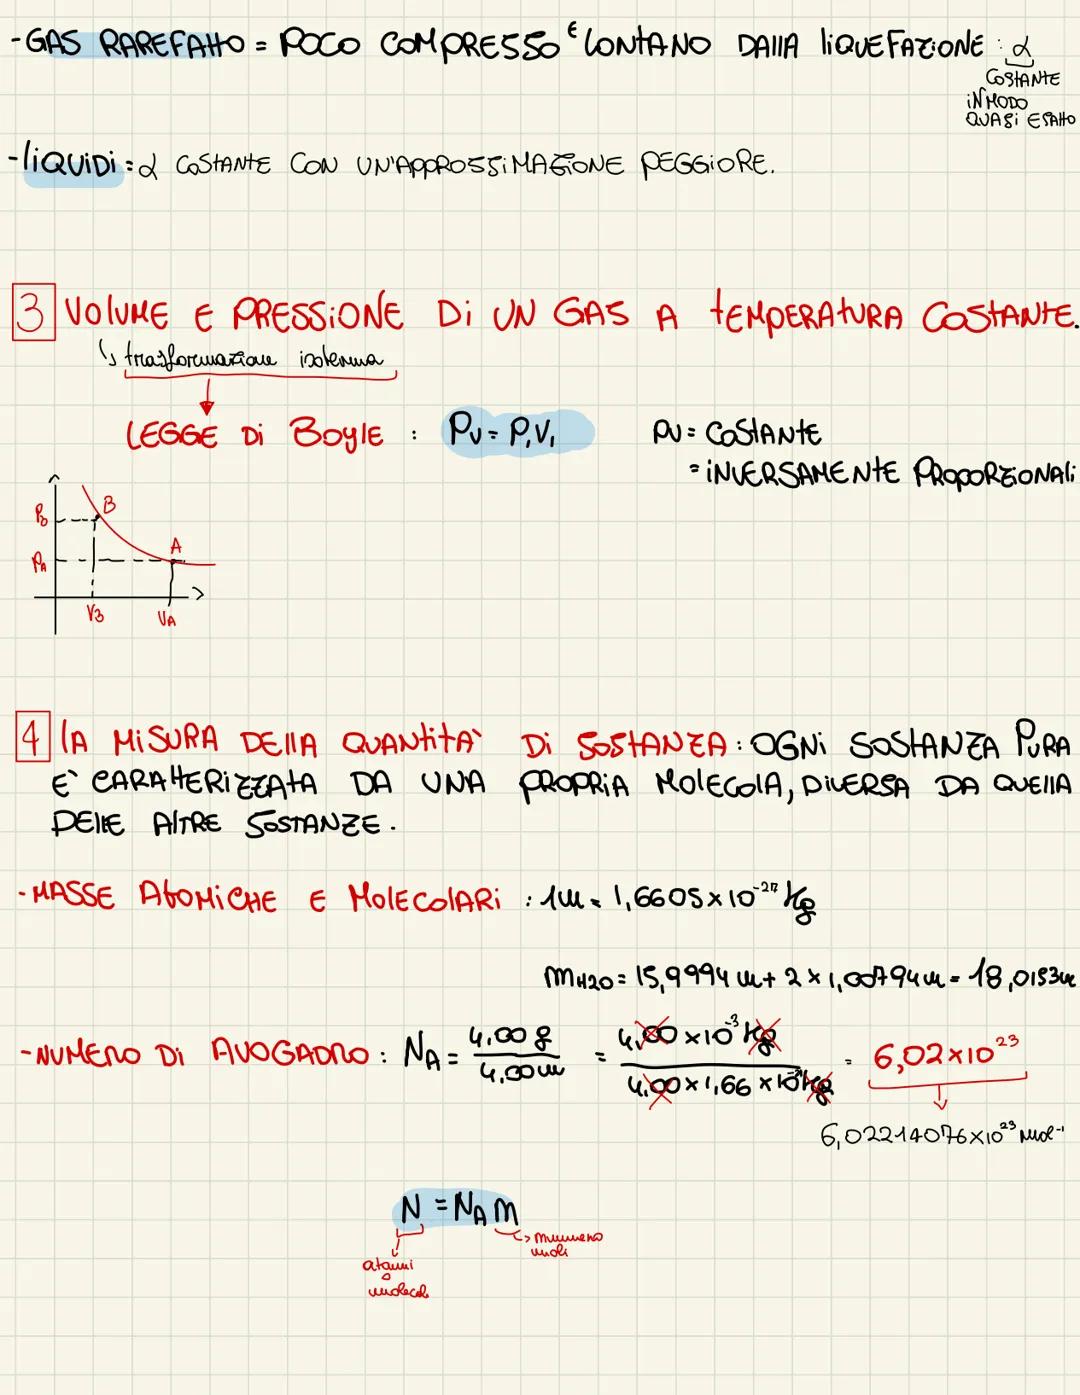 -GAS RAREFATTO = POCO COMPRESSO E LONTANO DALLA LIQUEFAZIONE : α
COSTANTE
IN MODO
QUASI ESATTO
-LIQUIDI : α COSTANTE CON UN'APPROSSIMAZIONE PEGGIORE.
3 VOLUME E PRESSIONE DI UN GAS A TEMPERATURA COSTANTE.
↳ trasformazione isoterma
LEGGE DI BOYLE : PV = P₁V₁
PV = COSTANTE
= INVERSAMENTE PROPORZIONALI
PB B
PA A
VB VA
4 LA MISURA DELLA QUANTITA' DI SOSTANZA : OGNI SOSTANZA PURA
E' CARATTERIZZATA DA UNA PROPRIA MOLECOLA, DIVERSA DA QUELLA
DELLE ALTRE SOSTANZE.
-MASSE ATOMICHE E MOLECOLARI : 1u = 1,6605 × 10⁻²⁷ Kg
mH2O = 15,9994 u + 2 × 1,00794 u = 18,0153 u
-NUMERO DI AVOGADRO : NA = 4,00 g / 4,00 u = 4,00 × 10⁻³ Kg / 4,00 × 1,66 × 10⁻²⁷ Kg = 6,02 × 10²³
6,02214076 × 10²³ mol⁻¹
N = NA n
→ numero
moli
atomi
o
molecole